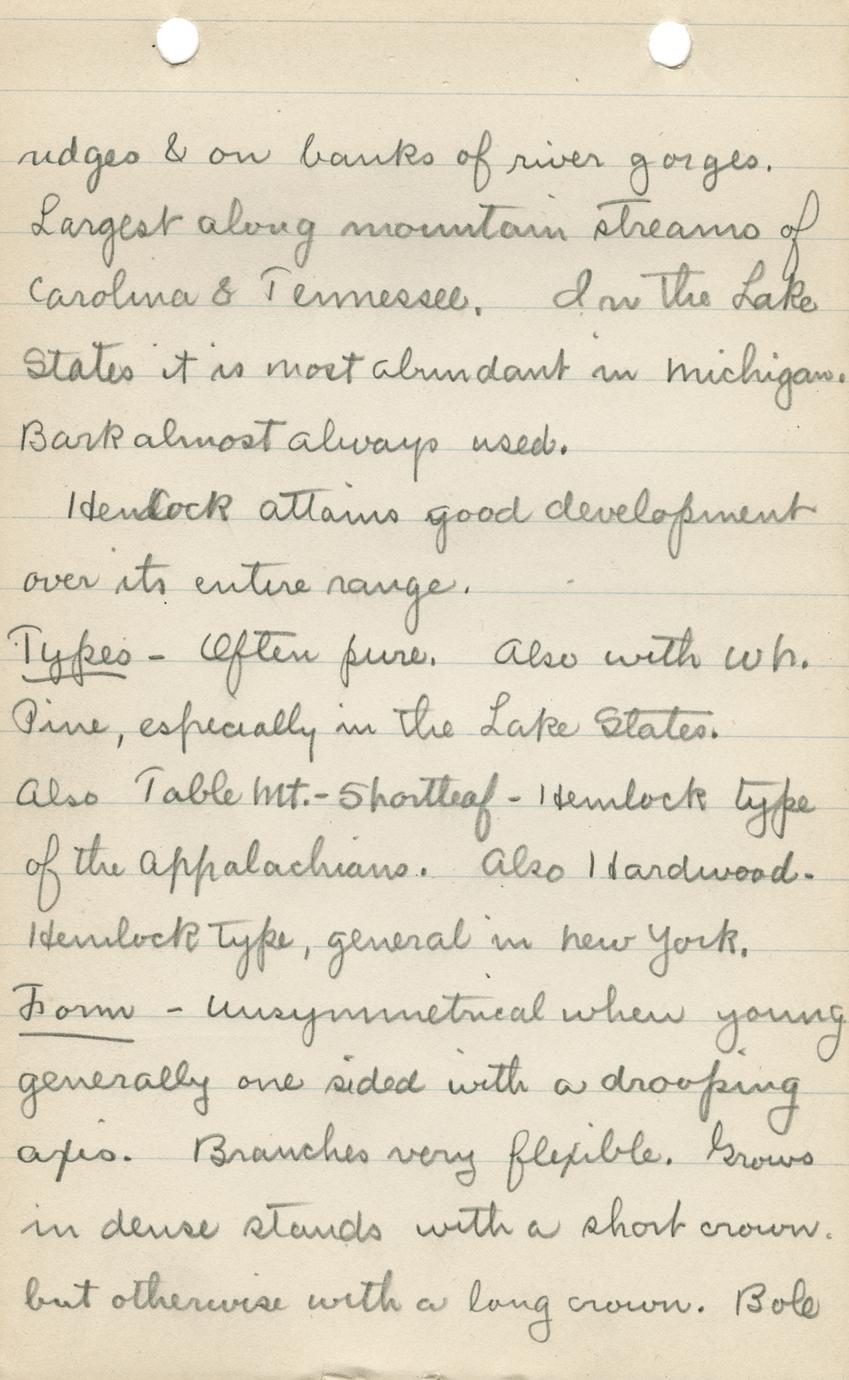 ridges & on banks of river gorges.
Largest along mountain streams of
Carolina & Tennessee. In the Lake
States it is most abundant in Michigan.
Bark almost always used.
Hemlock attains good development
over its entire range.
Types - Often pure. Also with Wh.
Pine, especially in the Lake States.
Also Table Mt.- Shortleaf - Hemlock type
of the Appalachians. Also Hardwood-
Hemlock type, general in New York.
Form - Unsymmetrical when young
generally one sided with a drooping
axis. Branches very flexible. Grows
in dense stands with a short crown.
but otherwise with a long crown. Bole